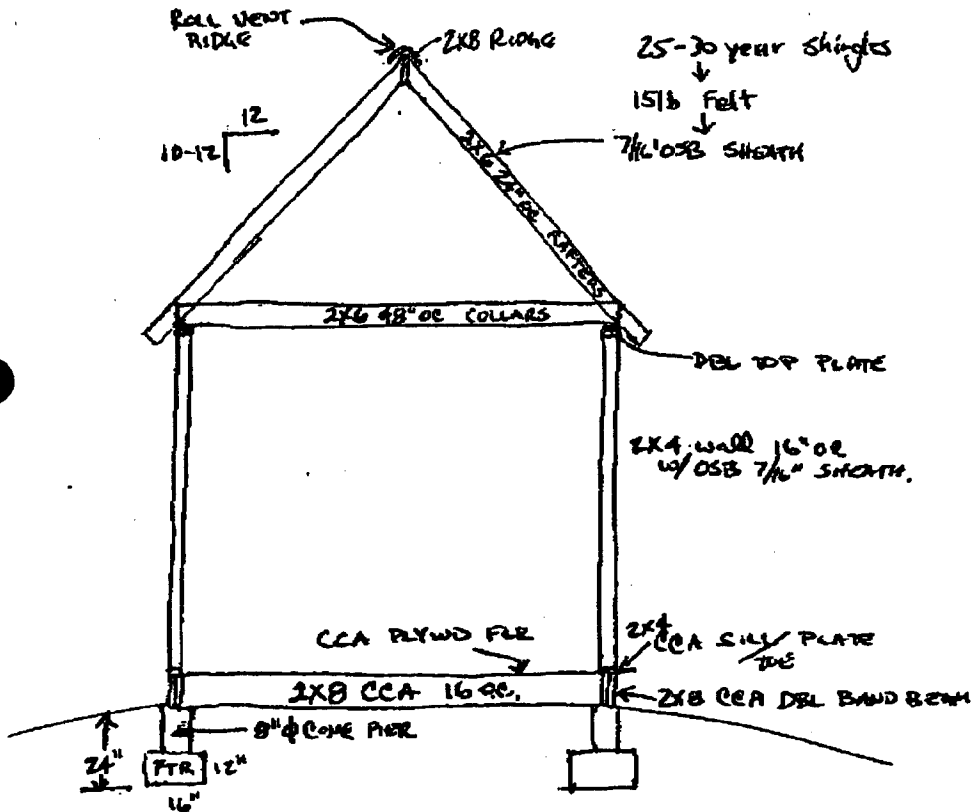 ROLL VENT
RIDGE
2X8 RIDGE
25-30 year shingles
15lb Felt
7/16" OSB SHEATH
12
10-12
2X6 24" OC RAFTERS
2X6 48" OC COLLARS
DBL TOP PLATE
2X4 wall 16" OC
W/ OSB 7/16" SHEATH.
CCA PLYWD FLR
2X4
CCA SILL/PLATE
2X8 CCA 16 OC.
2X8 CCA DBL BAND BEAM
8" ϕ CONC PIER
24"
FTR
12"
16"